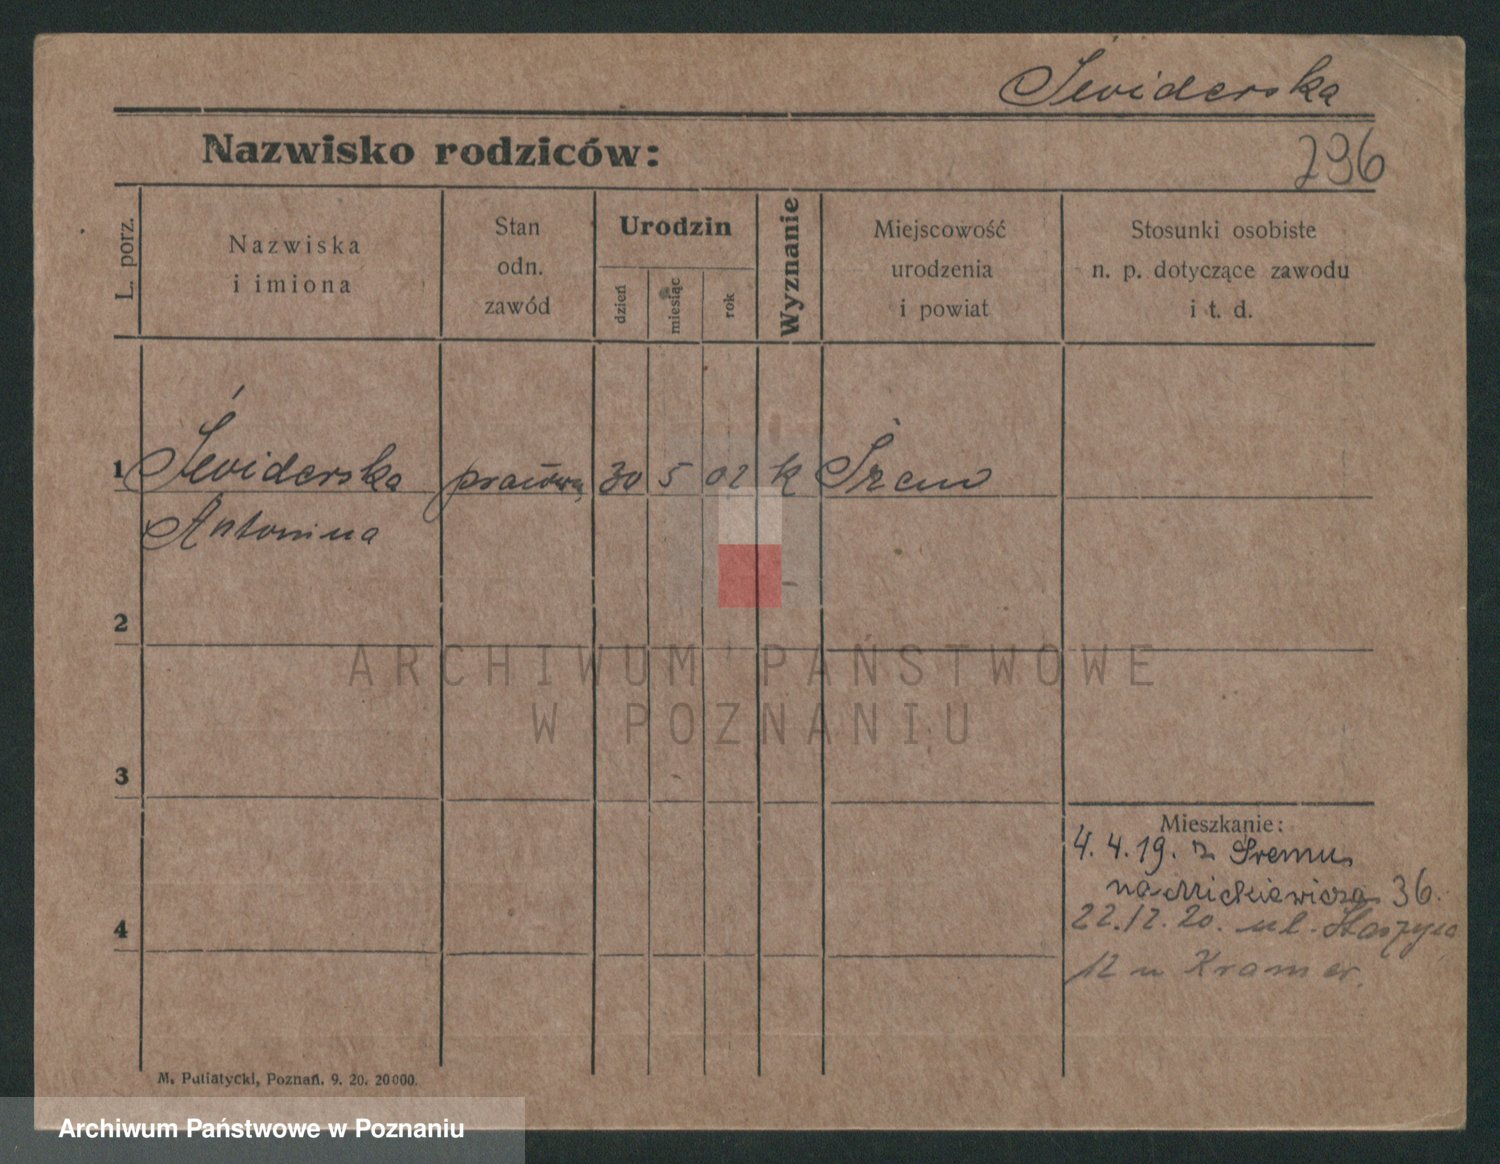 Świderska
Nazwisko rodziców:
296
L. porz.
Nazwiska
i imiona
Stan
odn.
zawód
Urodzin
dzień
miesiąc
rok
Wyznanie
Miejscowość
urodzenia
i powiat
Stosunki osobiste
n. p. dotyczące zawodu
i t. d.
1 Świderska 30 5 02 k Śrem
Antonina
2
3
4
Mieszkanie:
4. 4. 19. z Śremu
na Mickiewicza 36.
22.12.20. ul. Staszyca
12 u Kramer.
M. Putiatycki, Poznań. 9. 20. 20000.
ARCHIWUM PAŃSTWOWE
W POZNANIU
Archiwum Państwowe w Poznaniu